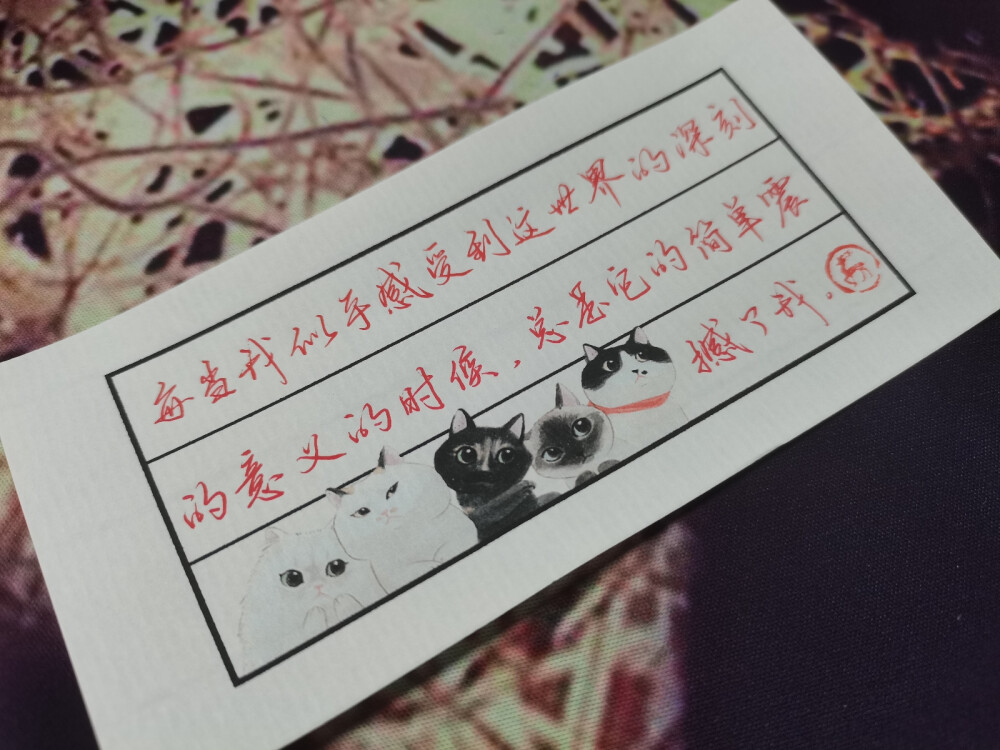 每当我似乎感受到这世界的深刻
的意义的时候，总是它的简单震
撼了我。